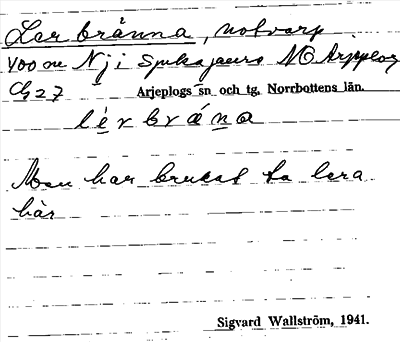 Lerbränna, notvarp
400 m N j i Spikajaurs NO Arjeplog
Cg 27 Arjeplogs sn och tg, Norrbottens län.
lérbrä́na
Man har brukat ta lera
här
Sigvard Wallström, 1941.